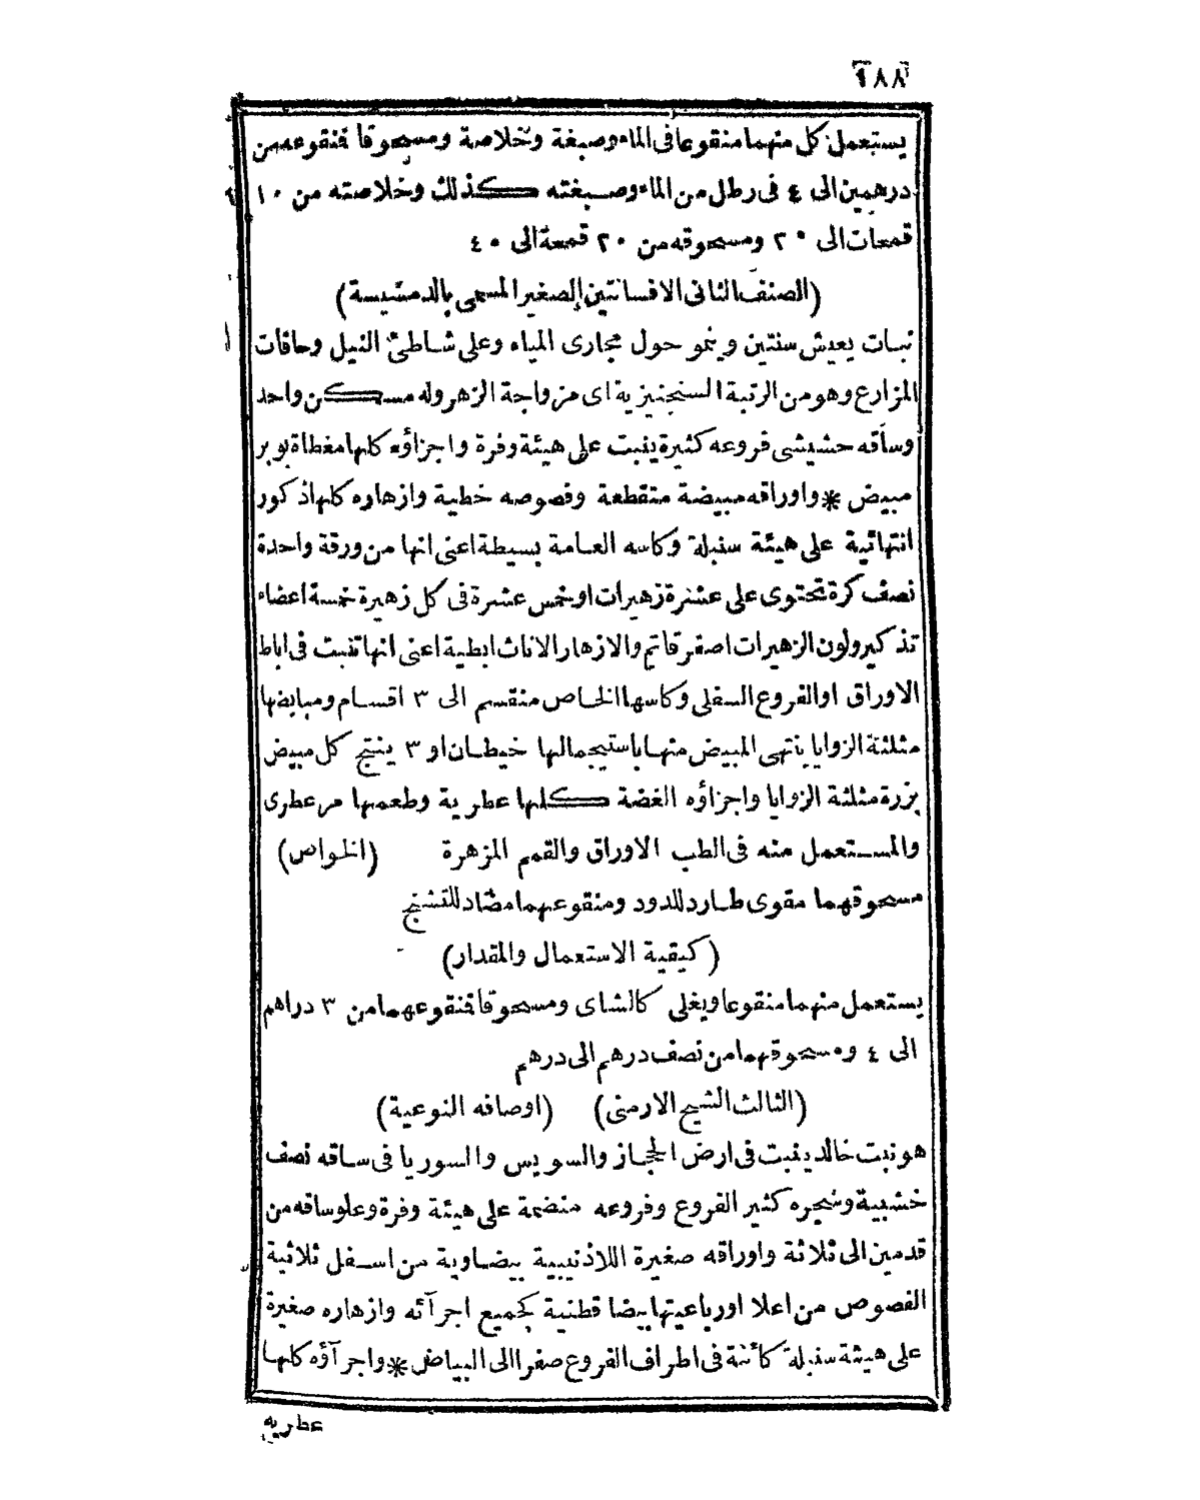 ١٨٨
يستعمل كل منهما منقوعا فى الماء وصبغة وخلاصة ومسحوقا فنقوعه من
درهمين الى ٤ فى رطل من الماء وصبغته كذلك وخلاصته من ١٠
قمحات الى ٢٠ ومسحوقه من ٢٠ قمحة الى ٤٠
(الصنف الثانى الافسانتين الصغير المسمى بالدمسيسة)
نبات يعيش سنتين وينمو حول مجارى المياه وعلى شاطئ النيل وحافات
المزارع وهو من الرتبة السنجنيزية اى مزواجة الزهر وله مسكن واحد
وساقه حشيشى فروعه كثيرة ينبت على هيئة وفرة واجزاؤه كلها مغطاة بوبر
مبيض * واوراقه مبيضة متقطعة وفصوصه خطية وازهاره كلها ذكور
انتهائية على هيئة سنبلة وكاسه العامة بسيطة اعنى انها من ورقة واحدة
نصف كرة تحتوى على عشرة زهيرات او خمس عشرة فى كل زهيرة خمسة اعضاء
تذكير ولون الزهيرات اصفر قاتم والازهار الاناث ابطية اعنى انها تنبت فى اباط
الاوراق او الفروع السفلى وكاسها الخاص منقسم الى ٣ اقسام ومبايضها
مثلثة الزوايا ينتهى المبيض منها باستيجمالها خيطان او ٣ ينتج كل مبيض
بزرة مثلثة الزوايا واجزاؤه الغضة كلها عطرية وطعمها مر عطرى
والمستعمل منه فى الطب الاوراق والقمم المزهرة (الخواص)
مسحوقهما مقوى طارد للدود ومنقوعهما مضاد للتشنج
(كيفية الاستعمال والمقدار)
يستعمل منهما منقوعا ويغلى كالشاى ومسحوقا فنقوعهما من ٣ دراهم
الى ٤ ومسحوقهما من نصف درهم الى درهم
(الثالث الشيح الارمنى) (اوصافه النوعية)
هو نبت خالد ينبت فى ارض الحجاز والسويس والسوريا فى ساقه نصف
خشبية وشجره كثير الفروع وفروعه منضمة على هيئة وفرة وعلو ساقه من
قدمين الى ثلاثة واوراقه صغيرة اللاذنيبية بيضاوية من اسفل ثلاثية
الفصوص من اعلا اورباعيتها بيضا قطنية كجميع اجزآئه وازهاره صغيرة
على هيئة سنبلة كأئنة فى اطراف الفروع صفرا الى البياض * واجزآؤه كلها
عطرية